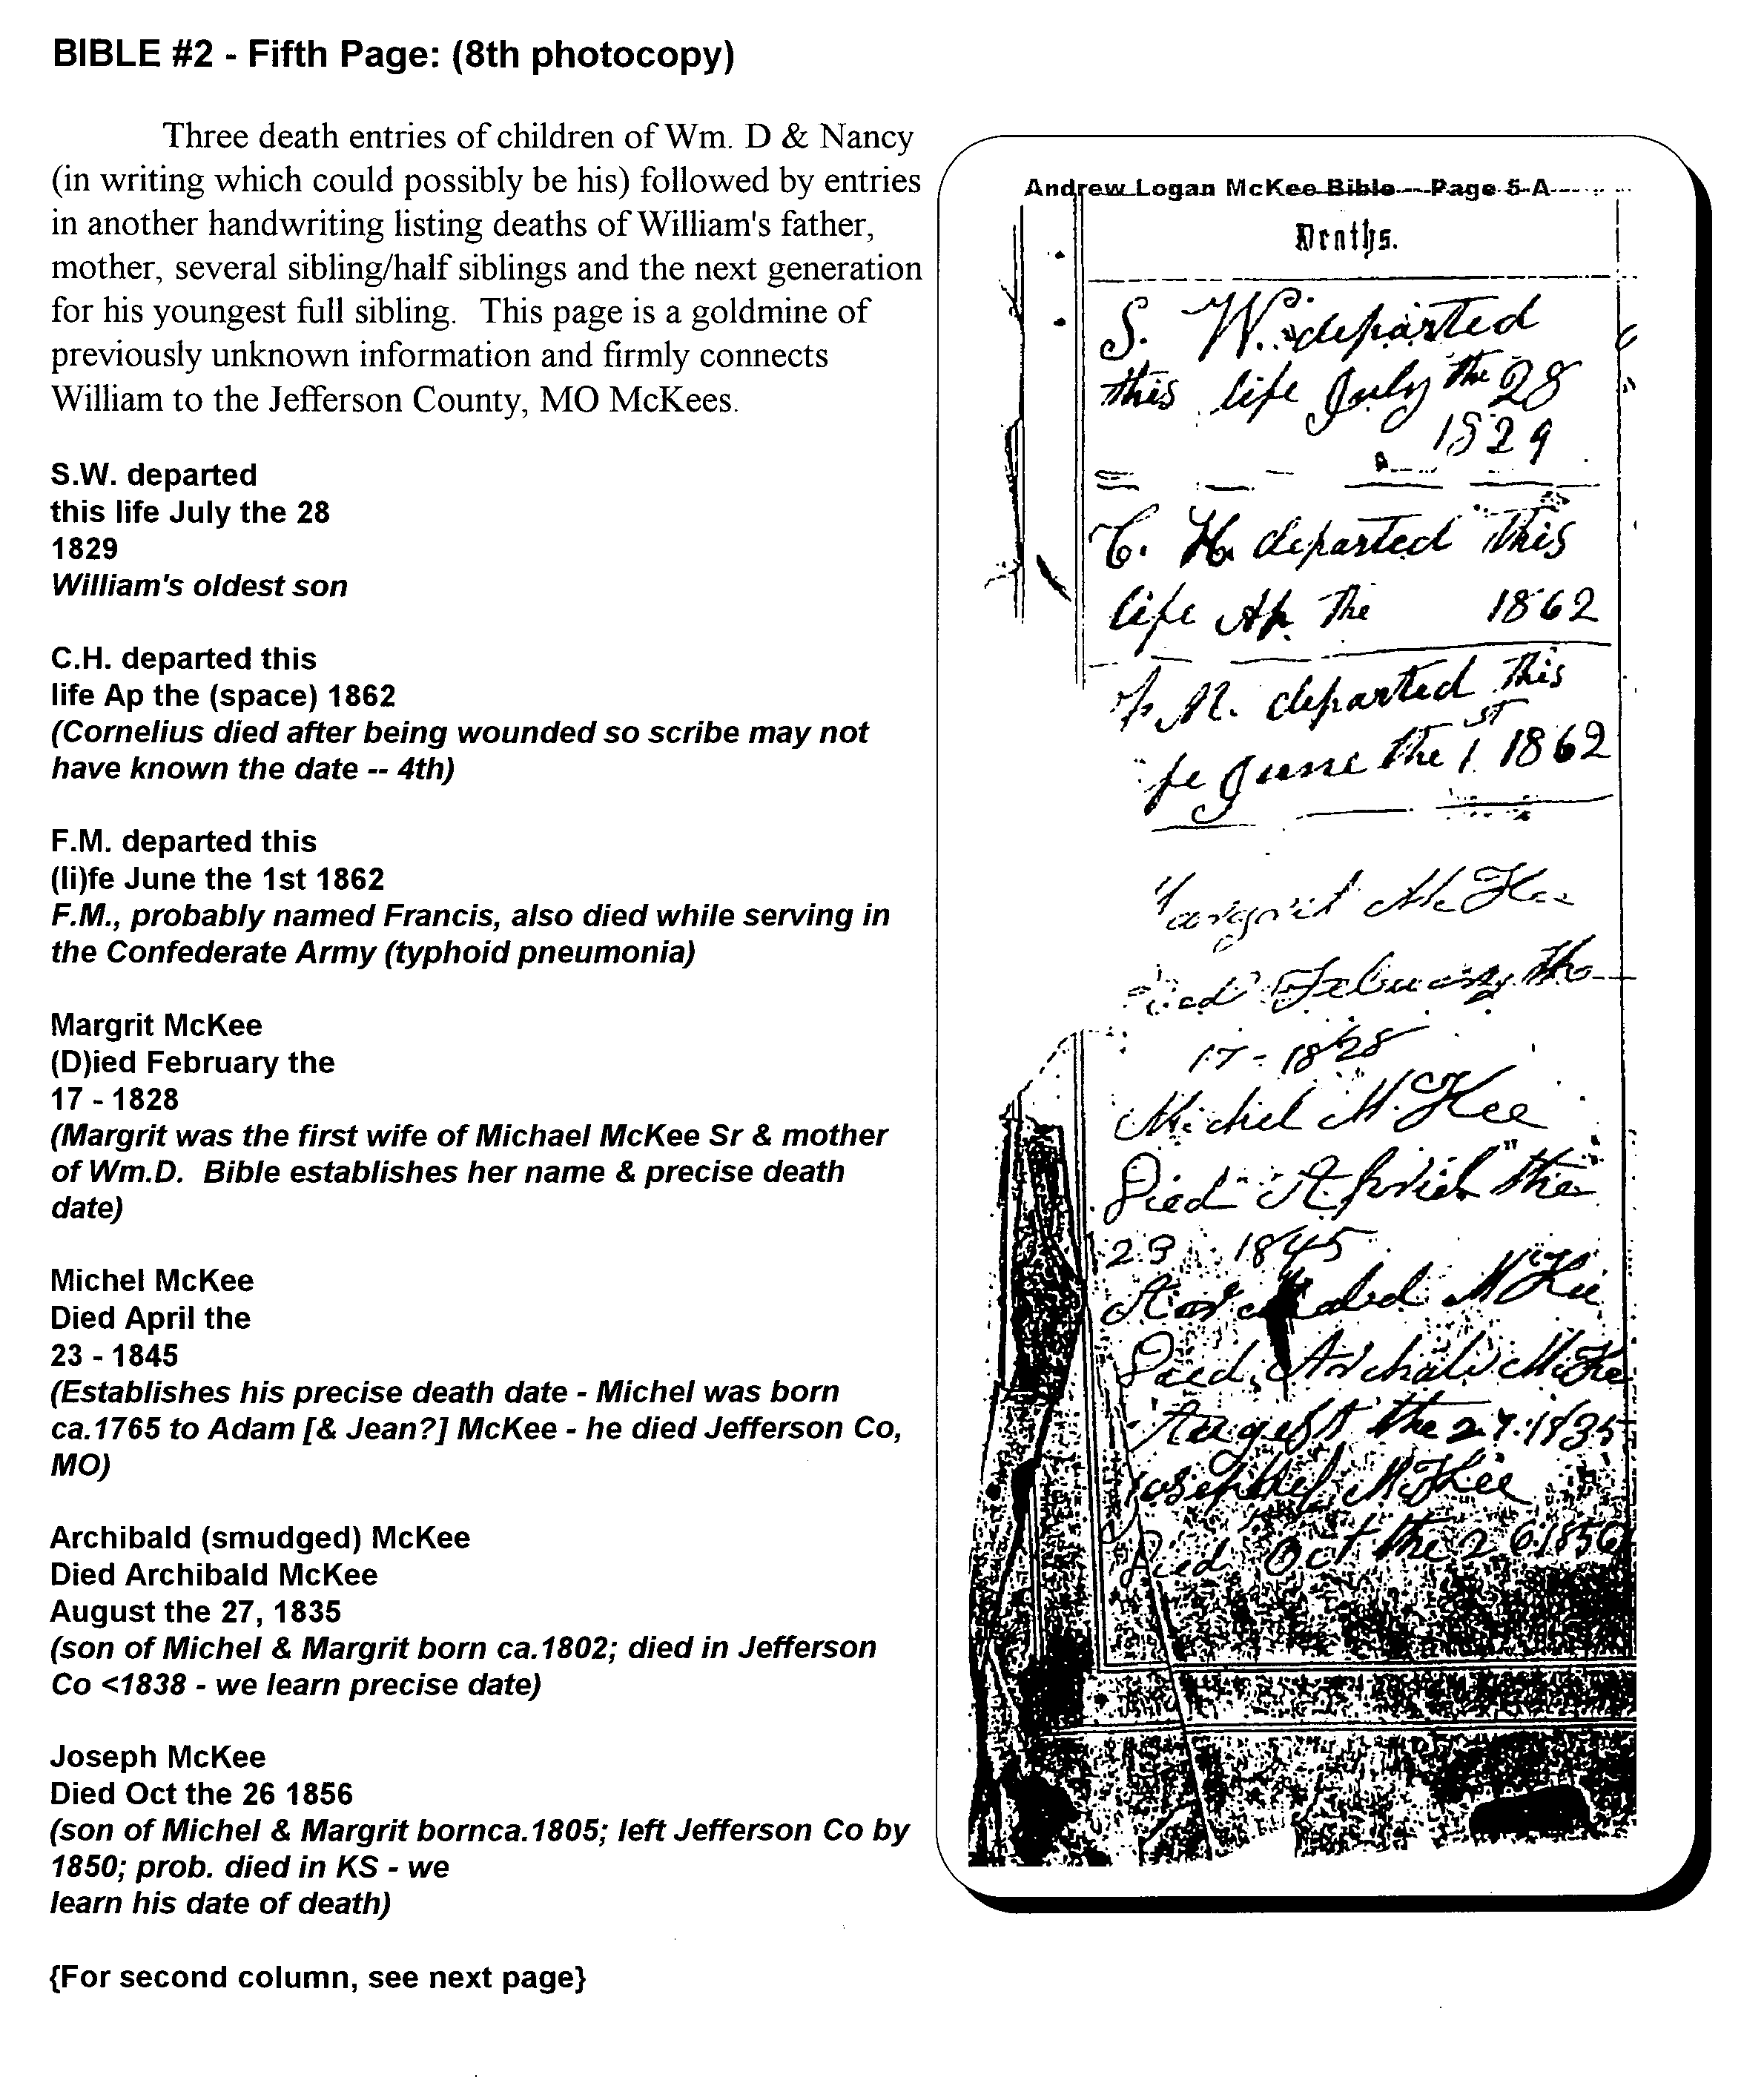 BIBLE #2 - Fifth Page: (8th photocopy)
Three death entries of children of Wm. D & Nancy
(in writing which could possibly be his) followed by entries
in another handwriting listing deaths of William's father,
mother, several sibling/half siblings and the next generation
for his youngest full sibling. This page is a goldmine of
previously unknown information and firmly connects
William to the Jefferson County, MO McKees.
S.W. departed
this life July the 28
1829
William's oldest son
C.H. departed this
life Ap the (space) 1862
(Cornelius died after being wounded so scribe may not
have known the date -- 4th)
F.M. departed this
(li)fe June the 1st 1862
F.M., probably named Francis, also died while serving in
the Confederate Army (typhoid pneumonia)
Margrit McKee
(D)ied February the
17 - 1828
(Margrit was the first wife of Michael McKee Sr & mother
of Wm.D. Bible establishes her name & precise death
date)
Michel McKee
Died April the
23 - 1845
(Establishes his precise death date - Michel was born
ca.1765 to Adam [& Jean?] McKee - he died Jefferson Co,
MO)
Archibald (smudged) McKee
Died Archibald McKee
August the 27, 1835
(son of Michel & Margrit born ca.1802; died in Jefferson
Co <1838 - we learn precise date)
Joseph McKee
Died Oct the 26 1856
(son of Michel & Margrit bornca.1805; left Jefferson Co by
1850; prob. died in KS - we
learn his date of death)
{For second column, see next page}
Andrew Logan McKee Bible---Page 5-A
Deaths.
S. W. departed
this life July the 28
1829
C. H. departed this
life Ap. the 1862
M. departed this
fe June the 1st 1862
argrit McKee
ied February the
17 - 1828
Michel McKee
Died April the
23 1845
McKee
Died McKee
the 27.1835
McKee
Died Oct the 26.1856